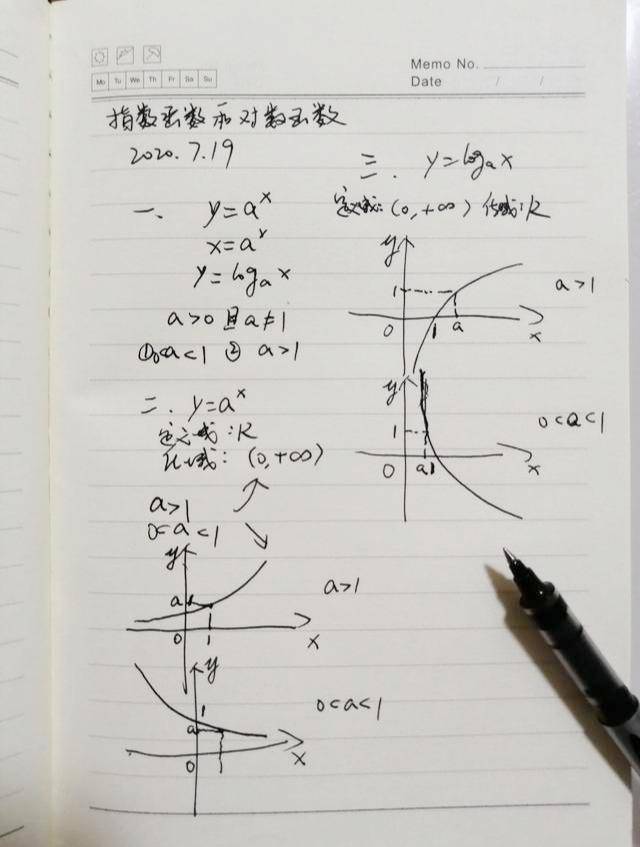 Memo No.
Date / /
Mo Tu We Th Fr Sa Su
指数函数和对数函数
2020.7.19
一. y=aˣ
x=aʸ
y=logₐx
a>0 且 a≠1
①0<a<1 ② a>1
二. y=aˣ
定义域:R
值域: (0,+∞)
a>1
0<a<1
y
a
0 1 x
a>1
y
1
a
0 x
0<a<1
三. y=logₐx
定义域:(0,+∞) 值域:R
y
1
0 1 a x
a>1
y
1
0 a 1 x
0<a<1